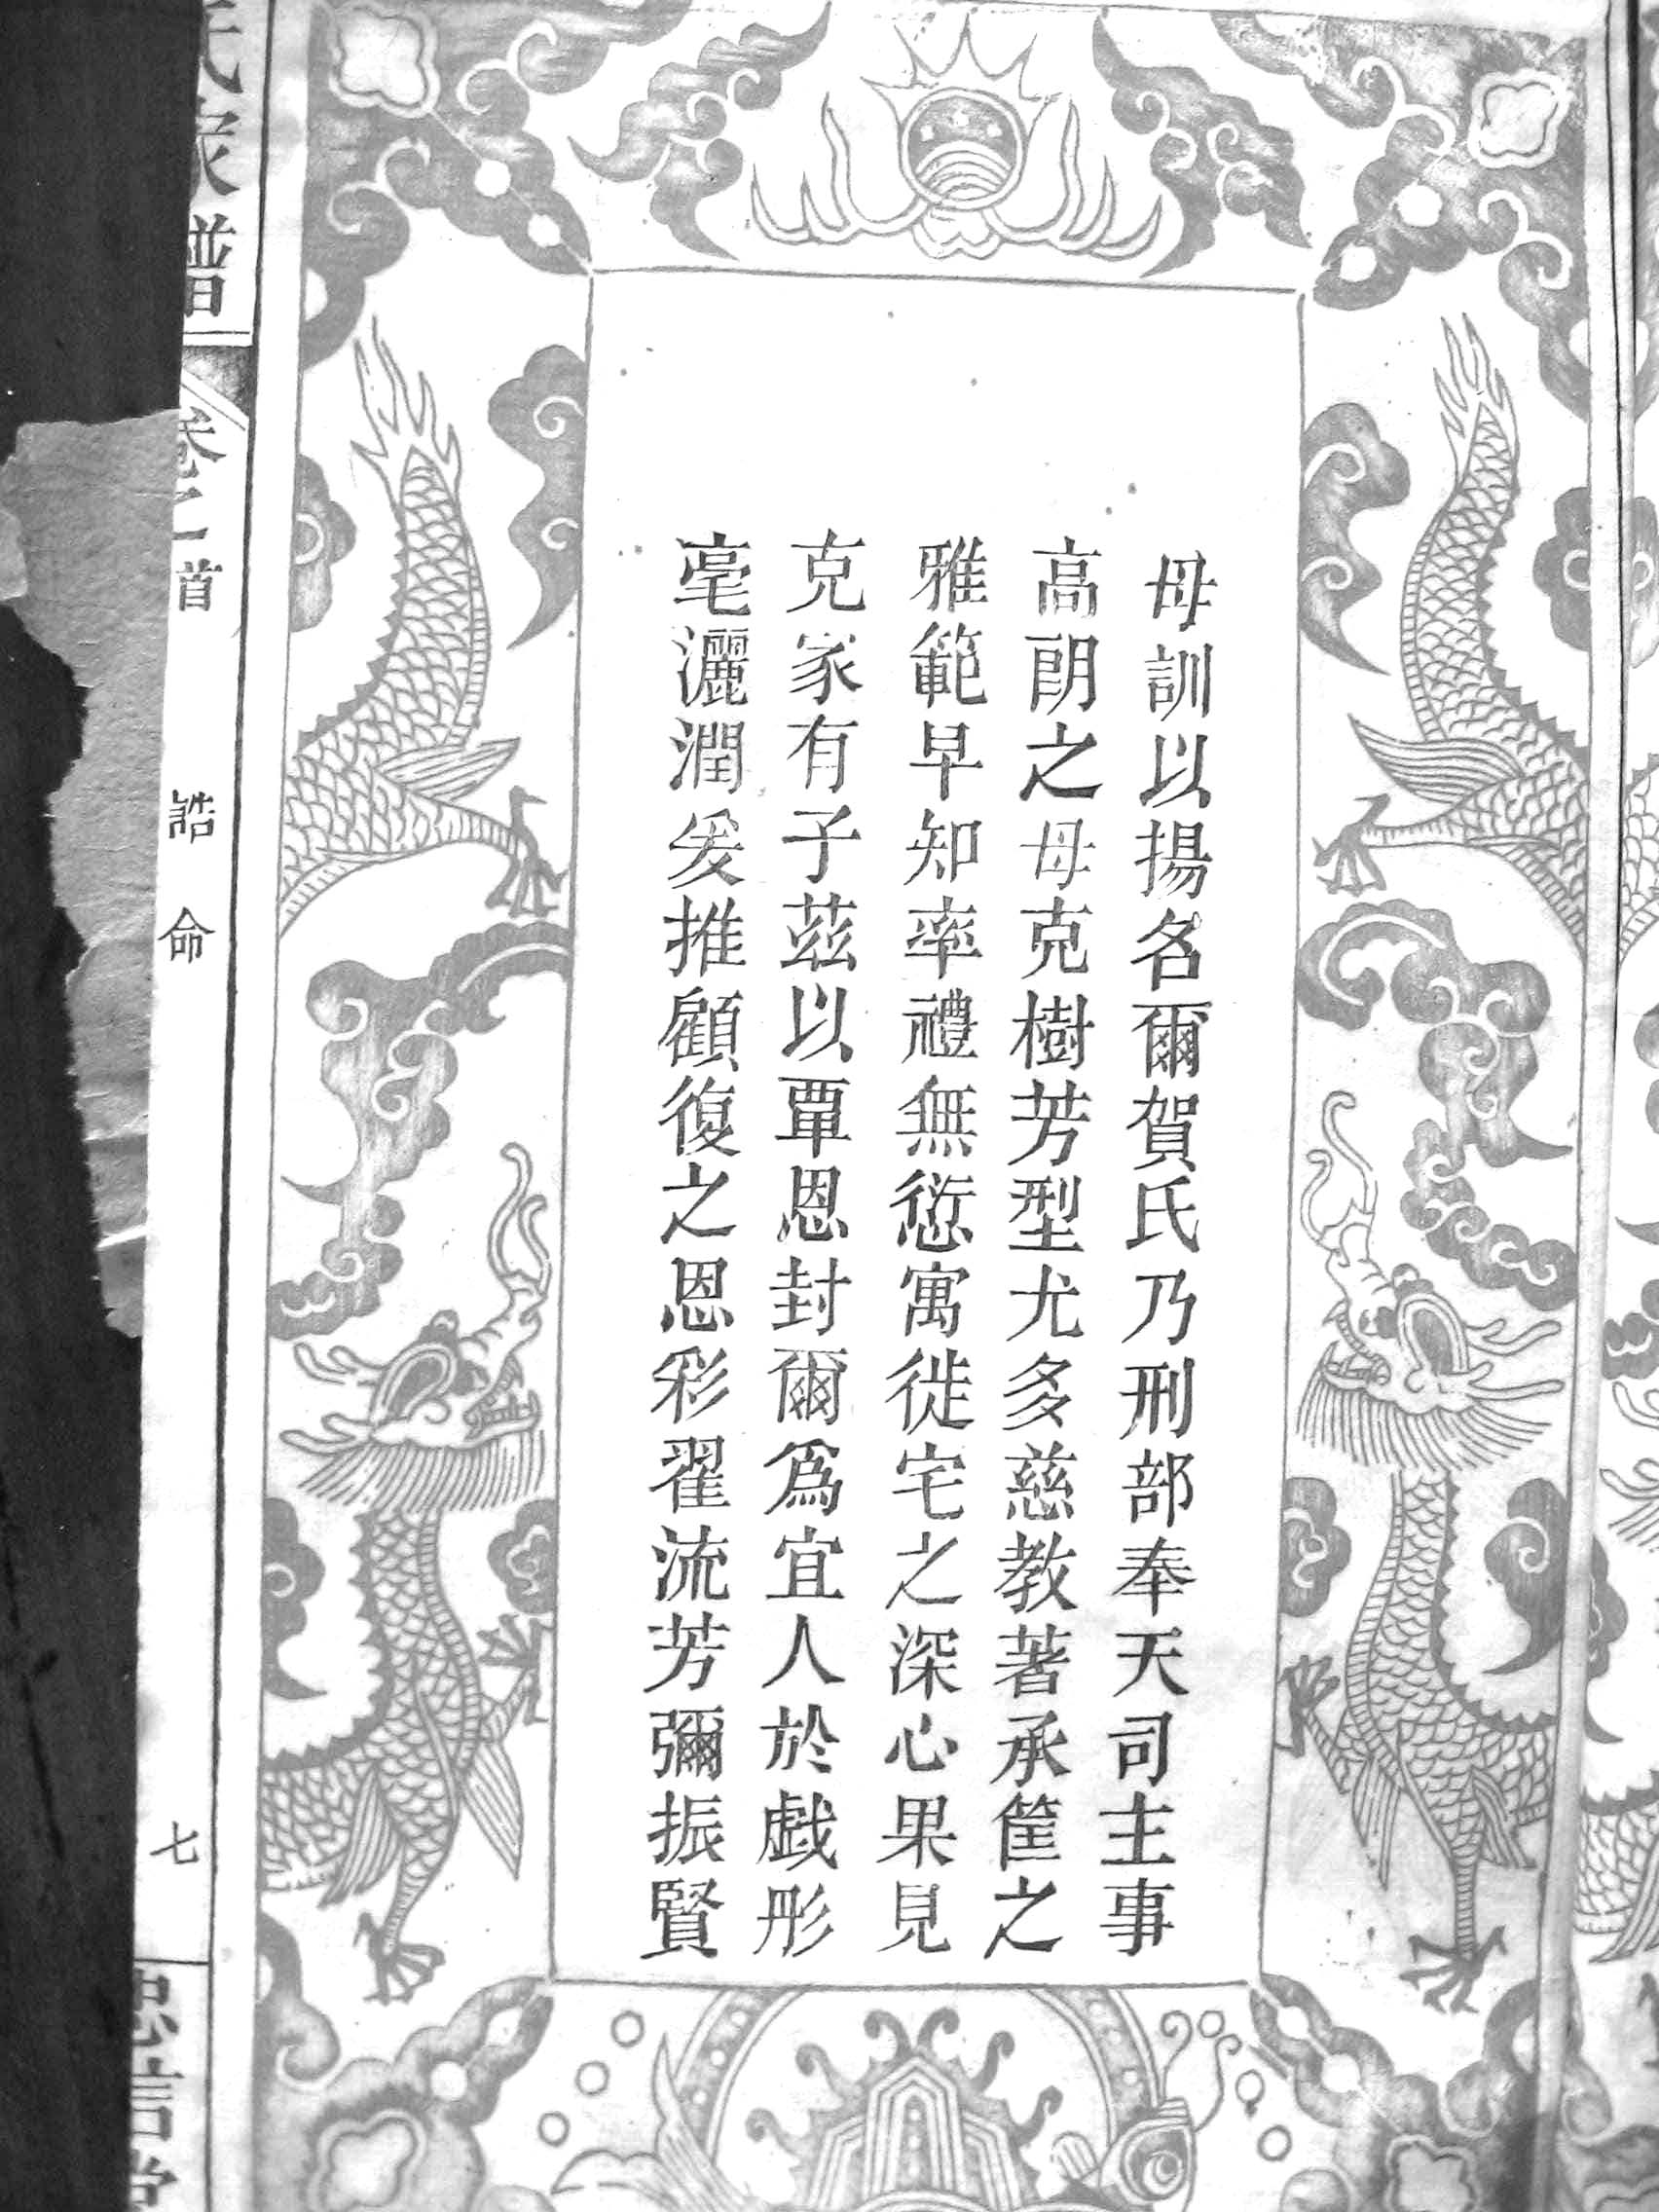 母訓以揚名爾賀氏乃刑部奉天司主事
高朗之母克樹芳型尤多慈教著承筐之
雅範早知率禮無愆寓徙宅之深心果見
克家有子茲以覃恩封爾爲宜人於戯彤
毫灑潤爰推顧復之恩彩翟流芳彌振賢
氏家譜
卷之首
誥命
七
忠信堂